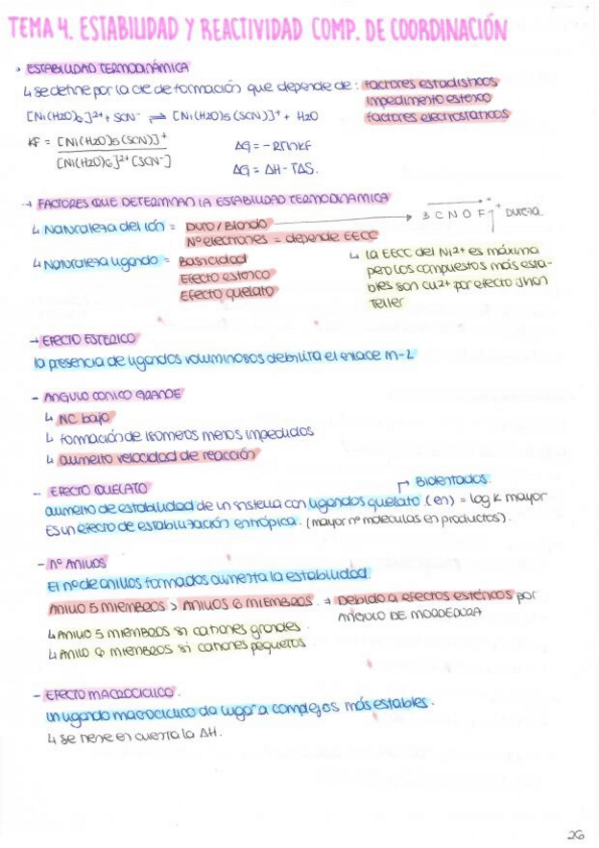 TEMA 4. ESTABILIDAD Y REACTIVIDAD COMP. DE COORDINACIÓN
ESTABILIDAD TERMODINÁMICA
↳ se define por la cte de formación que depende de: factores estadísticos
impedimento estérico
factores electrostáticos
[Ni(H2O)6]2+ + SCN- ⇌ [Ni(H2O)5(SCN)]+ + H2O
KF = [Ni(H2O)5(SCN)]+
[Ni(H2O)6]2+[SCN-]
ΔG = -RTlnKF
ΔG = ΔH - TΔS.
→ FACTORES QUE DETERMINAN LA ESTABILIDAD TERMODINÁMICA
↳ Naturaleza del ión = Duro / Blando → B C N O F ↑ + Dureza
Nº electrones = depende EECC
↳ Naturaleza ligando = Basicidad
Efecto estérico
Efecto quelato
↳ la EECC del Ni2+ es máxima
pero los compuestos más esta-
bles son Cu2+ por efecto Jhan
Teller
→ EFECTO ESTÉRICO
la presencia de ligandos voluminosos debilita el enlace M-L
- ANGULO CONICO GRANDE
↳ NC bajo
↳ formación de isomeros menos impedidos
↳ aumento velocidad de reacción
- EFECTO QUELATO
Bidentados.
aumento de estabilidad de un sistema con ligandos quelato (en) = log K mayor
Es un efecto de estabilización entrópica. (mayor nº moleculas en productos).
- Nº ANILLOS
El nº de anillos formados aumenta la estabilidad.
ANILLO 5 MIEMBROS > ANILLOS 6 MIEMBROS. → Debido a efectos estéricos por
ANGULO DE MORDEDURA
↳ ANILLO 5 MIEMBROS si cationes grandes.
↳ ANILLO 6 MIEMBROS si cationes pequeños.
- EFECTO MACROCICLICO.
un ligando macrociclico da lugar a complejos más estables.
↳ se tiene en cuenta la ΔH.
26